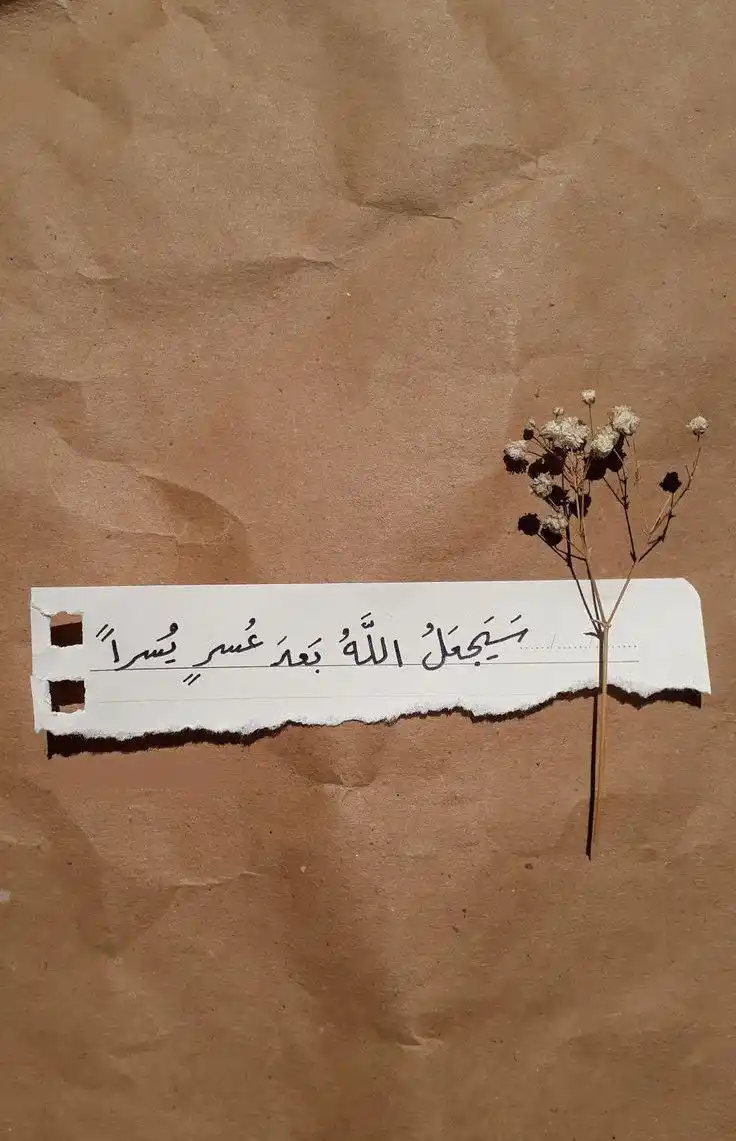 سَيَجعَلُ اللَّهُ بَعدَ عُسرٍ يُسَراً